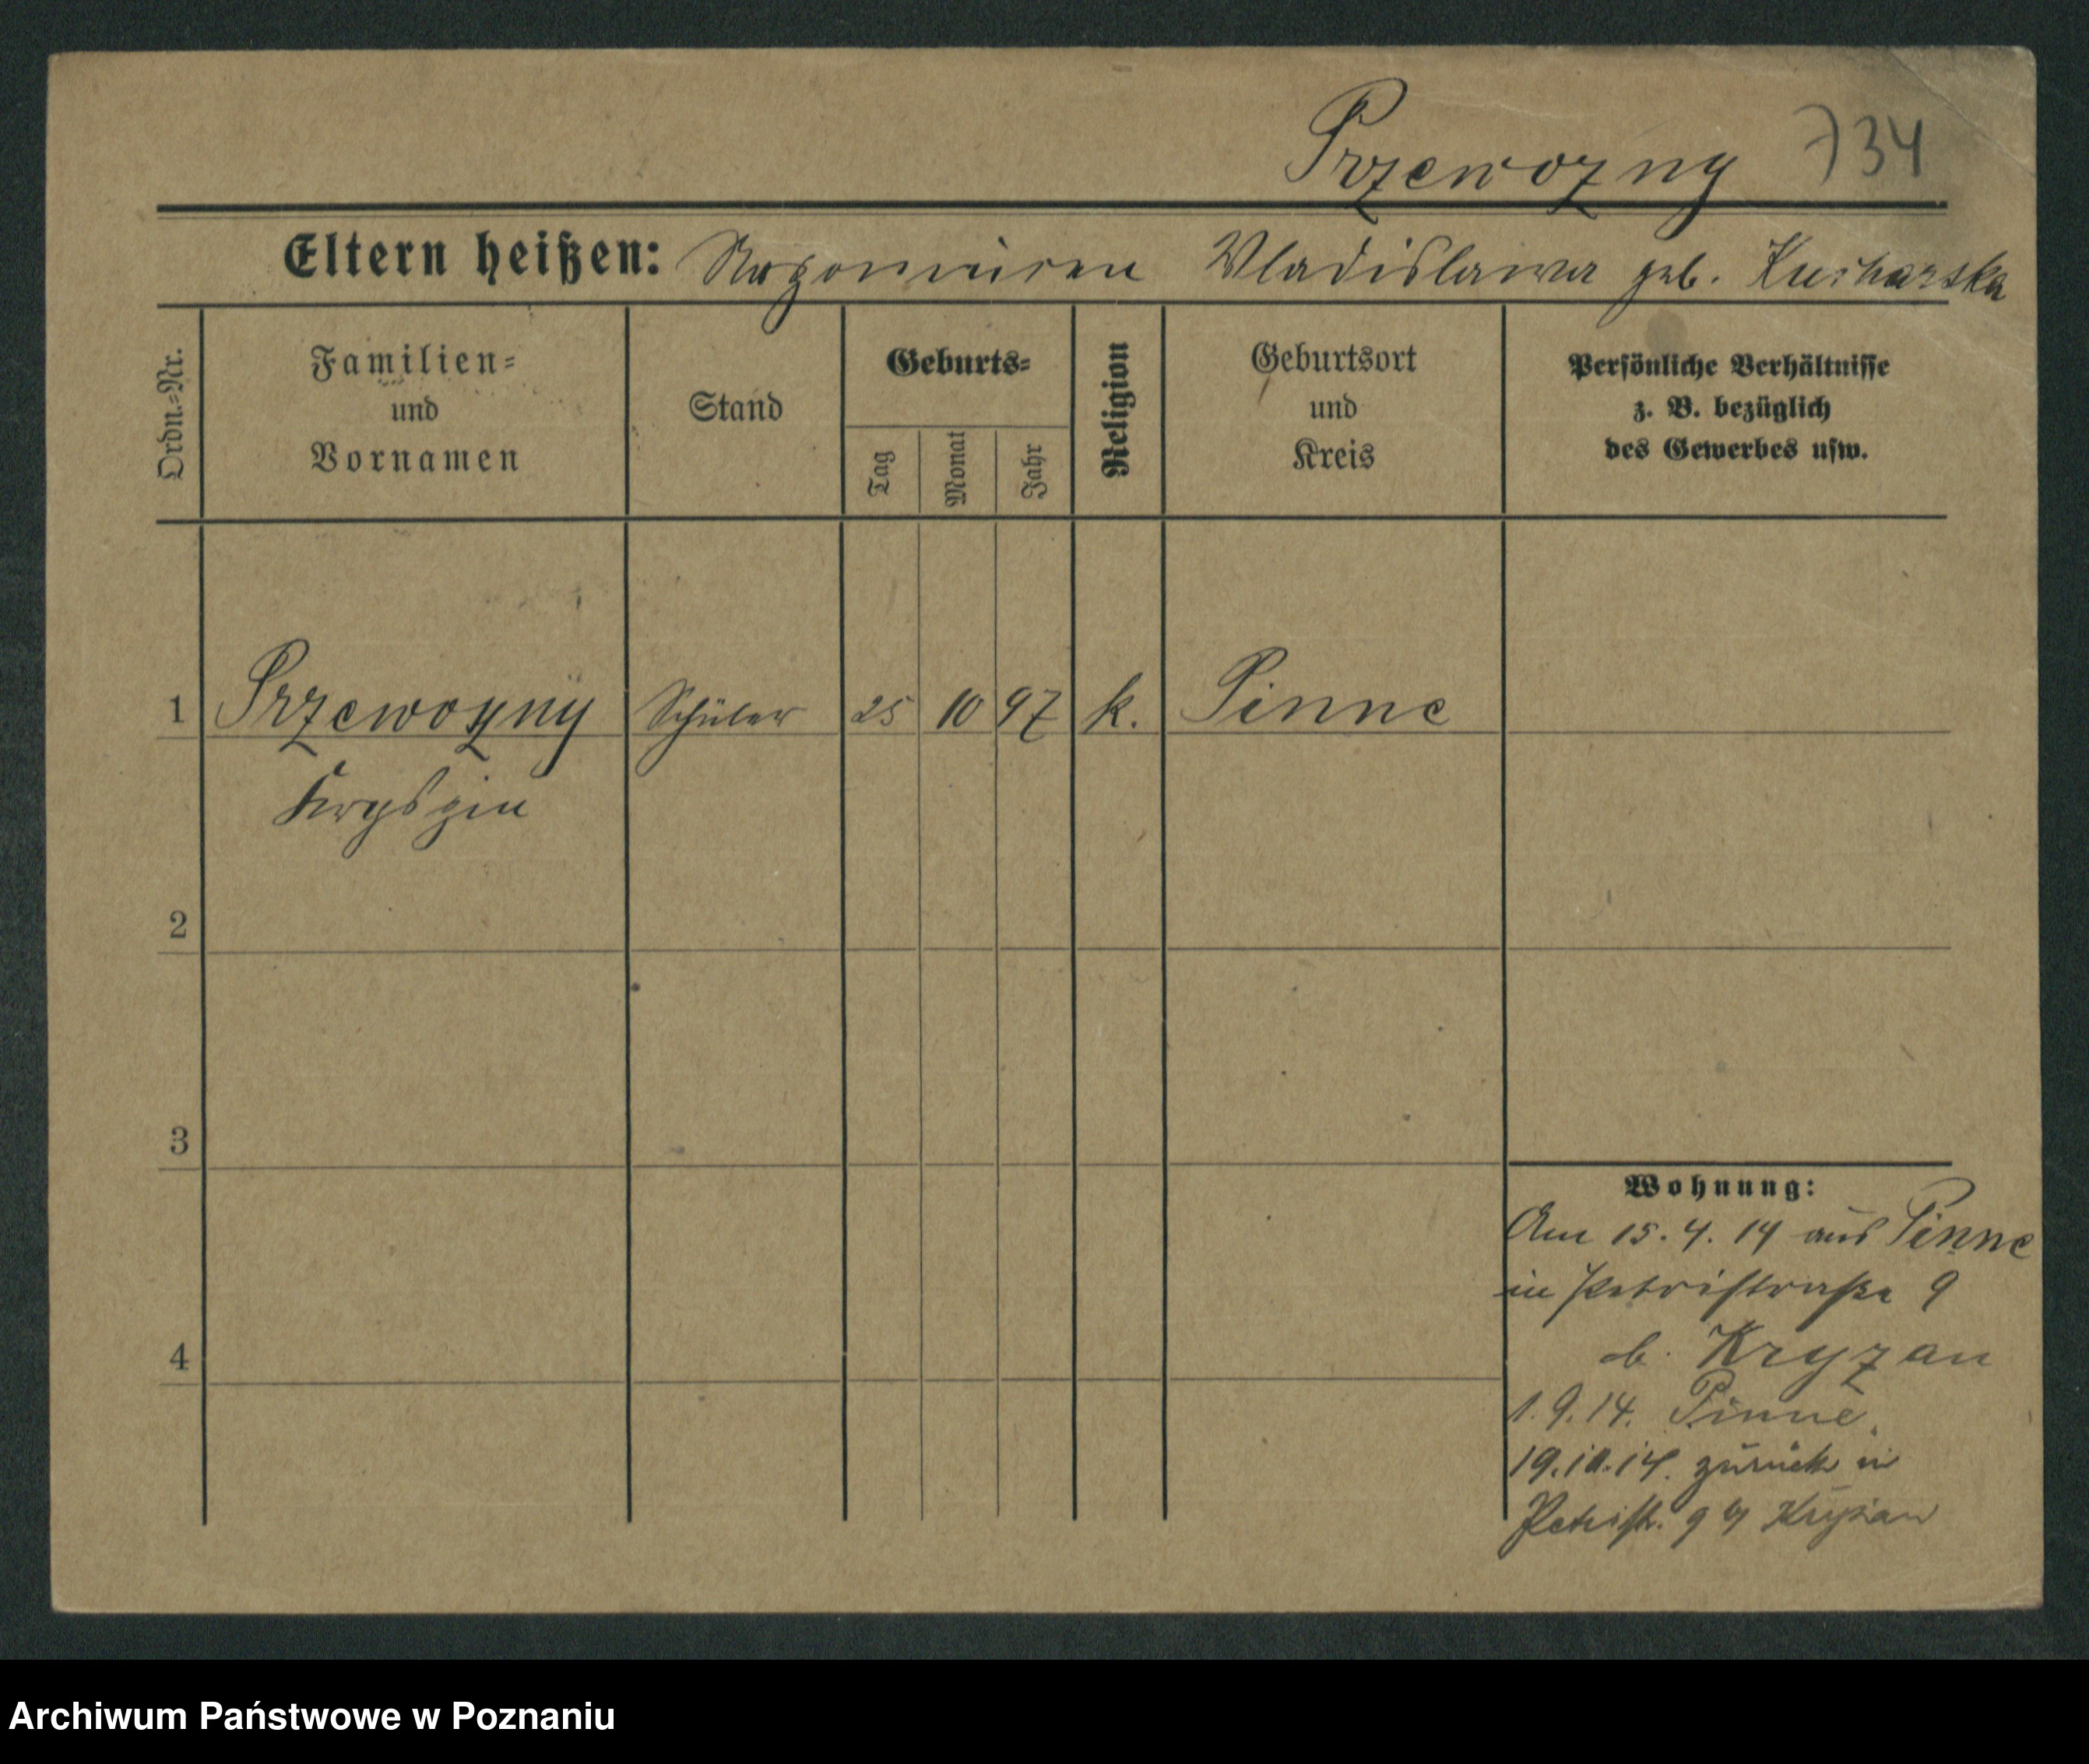 Przewozny 734
Eltern heißen: Wladislawa geb. Kucharska
Ordn.=Nr.
Familien=
und
Vornamen
Stand
Geburts=
Tag
Monat
Jahr
Religion
Geburtsort
und
Kreis
Persönliche Verhältnisse
z. B. bezüglich
des Gewerbes usw.
1 Przewozny Schüler 25 10 97 k. Pinne
2
3
4
Wohnung:
Am 15. 4. 14 aus Pinne
in Petristraße 9
b. Kryzan
1. 9. 14. Pinne
19.10.14. zurück in
Petristr. 9 Kryzan
Archiwum Państwowe w Poznaniu